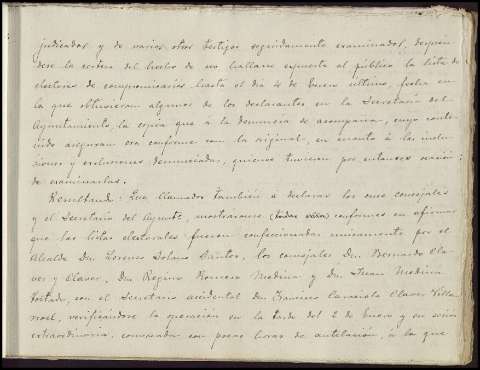 judicados y de varios otros testigos seguidamente examinados, despren
dese la certeza del hecho de no hallarse expuesta al público la lista de
electores de compromisarios hasta el día 4 de Enero último, fecha en
la que obtuvieron algunos de los declarantes en la Secretaría del
Ayuntamiento, la copia que á la denuncia se acompaña, cuyo conte
nido aseguran era conforme con la original, en cuanto á las inclu
siones y exclusiones denunciadas, quienes tuvieron por entonces ocasión
de examinarlas.
Resultando: Que llamados también á declarar los once concejales
y el Secretario del Ayuntº, mostraronse conformes en afirmar
que las listas electorales fueron confeccionadas unicamente por el
Alcalde Dn. Lorenzo Solano Santos, los concejales Dn. Bernardo Cla
ver y Claver, Dn. Regino Romero Medina y Dn. Juan Medina
Hortado, con el Secretario accidental Dn. Francisco Claver Villa
rroel, verificándose la operación en la tarde del 2 de Enero y en sesión
extraordinaria, convocada con pocas horas de antelación, á la que